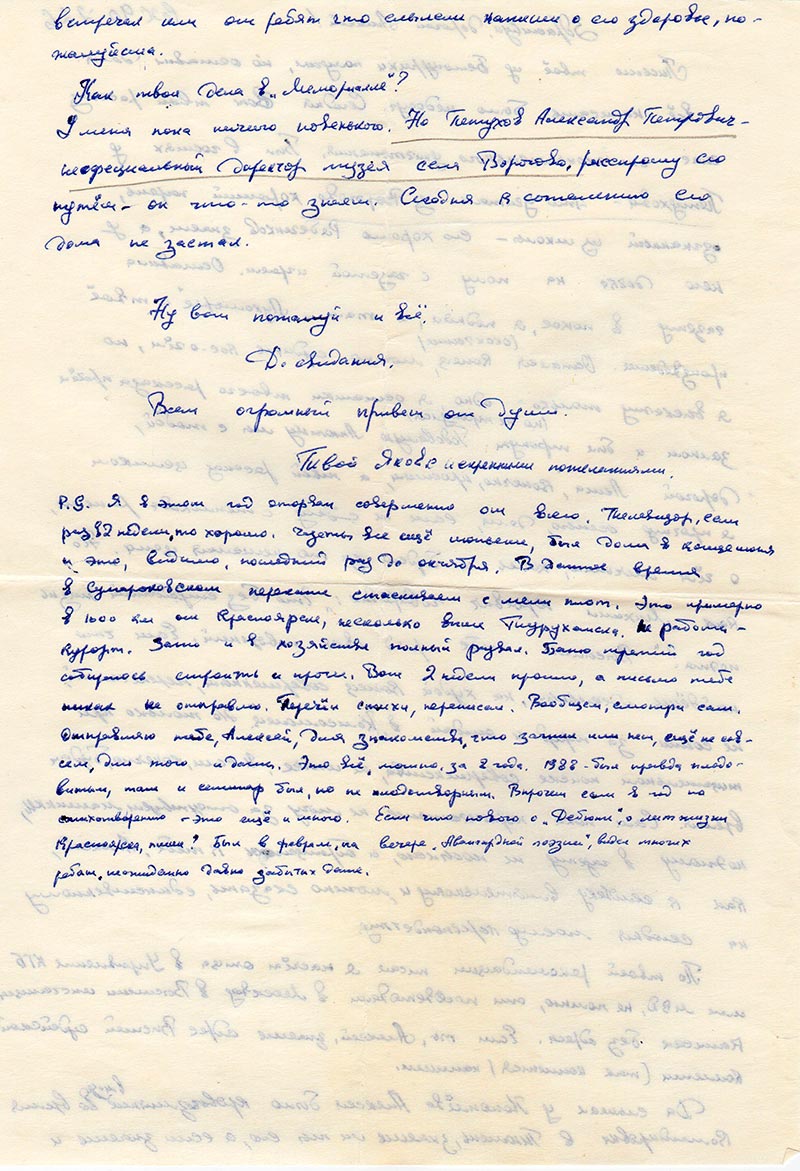 встречал или от ребят что слышали напиши о его здоровье, по-
жалуйста.
Как твои дела в „Мемориале"?
У меня пока ничего новенького. Но Петухов Александр Петрович-
неофициальный директор музея села Ворогово, расспрошу его
путём - он что-то знает. Сегодня к сожалению его
дома не застал.
Ну вот пожалуй и всё.
До свидания.
Всем огромный привет от души.
Твой Яков с искренними пожеланиями.
P.S. Я в этом год оторван совершенно от всего. Телевизор, если
раз в 2 недели, то хорошо. Газеты все ещё июньские, был дома в конце июня
и это, видимо, последний раз до октября. В данное время
в Сумароковском перекате стаскиваем с мели плот. Это примерно
в 1000 км от Красноярска, несколько выше Туруханска. Не работа -
курорт. Зато и в хозяйстве полный развал. Баню третий год
собираюсь строить и проч. Вот 2 недели прошло, а письмо тебе
никак не отправлю. Перечёл стихи, переписал. Вообщем, смотри сам.
Отправляю тебе, Алексей, для знакомства, что затих или нет, ещё не сов-
сем, для того и даты. Это всё, можно, за 2 года. 1988 - был правда плодо-
витым, там и семинар был, но не плодотворным. Впрочем если в год по
стихотворению - это ещё и много. Если что нового о „Дебюте", о лит. жизни
Красноярска, пиши? Был в феврале, на вечере „Авангардной поэзии", видел многих
ребят, неожиданно давно забытых даже.